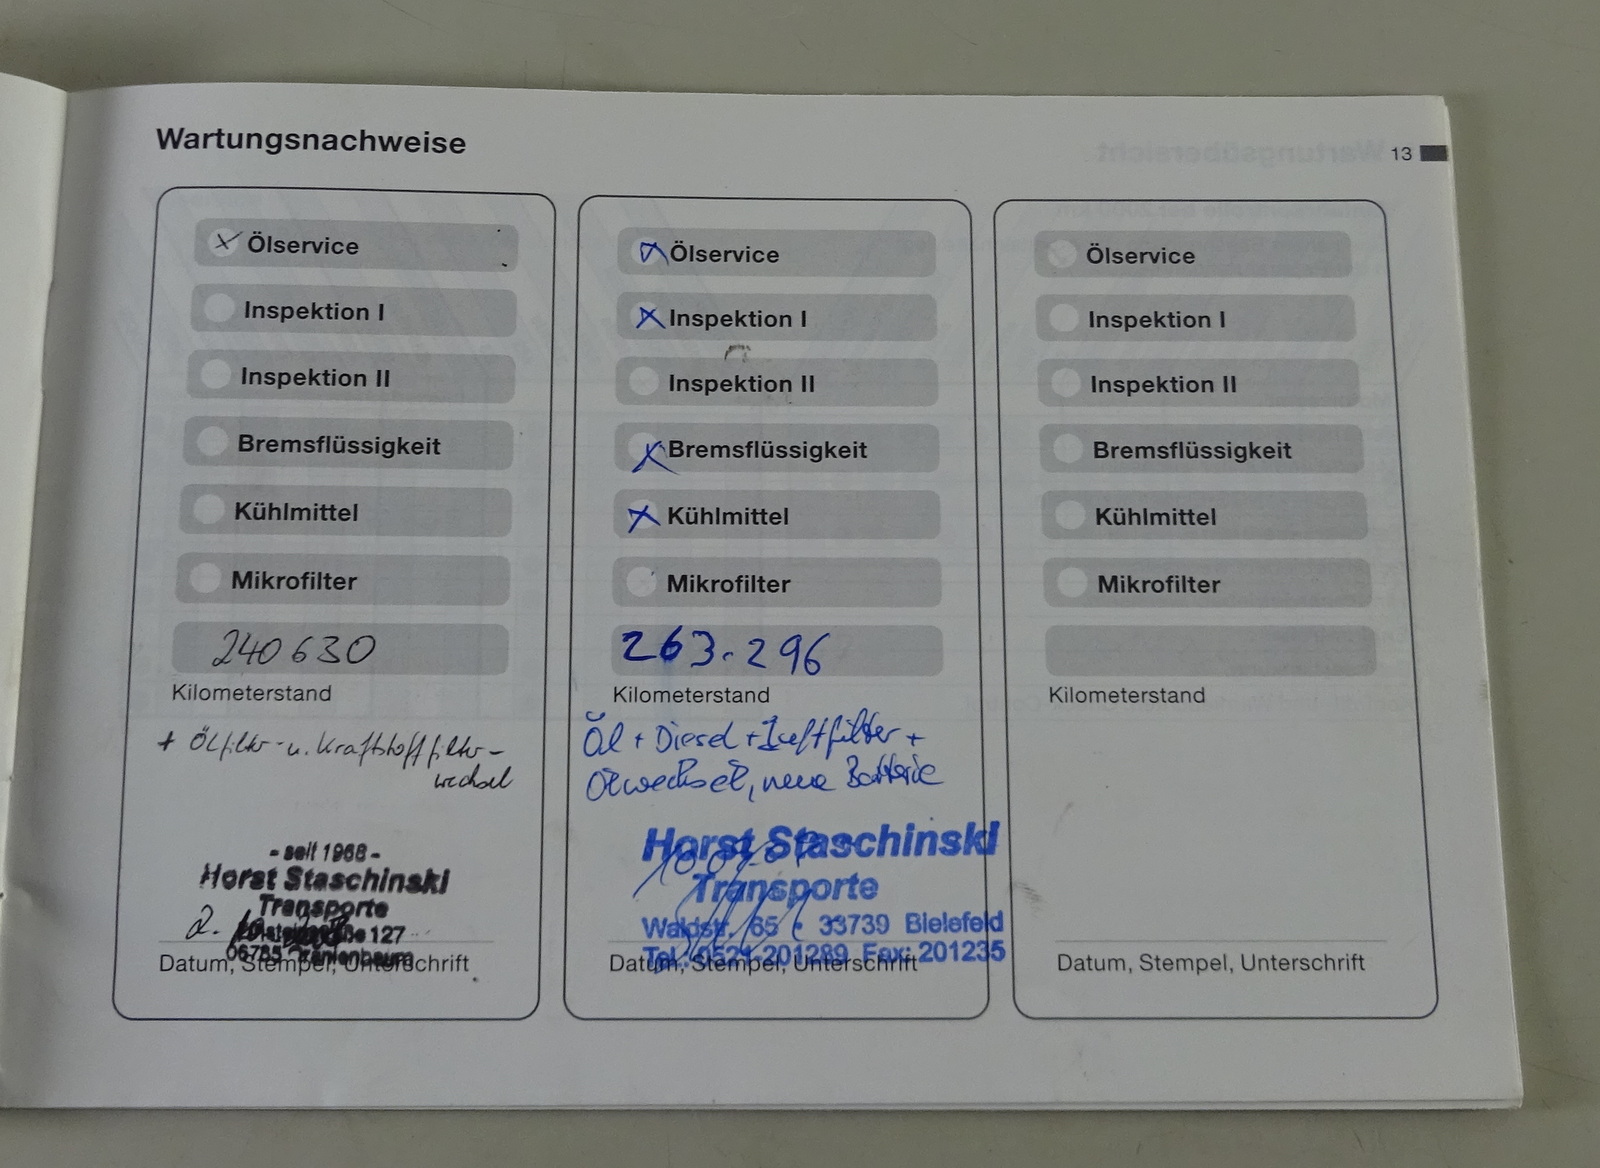 Wartungsnachweise
13
Ölservice
Inspektion I
Inspektion II
Bremsflüssigkeit
Kühlmittel
Mikrofilter
240630
Kilometerstand
+ Ölfilter- u. Kraftstofffilter-
wechsel
- seit 1968 -
Horst Staschinski
Transporte
127
06785
Datum, Stempel, Unterschrift
Ölservice
Inspektion I
Inspektion II
Bremsflüssigkeit
Kühlmittel
Mikrofilter
263.296
Kilometerstand
Öl + Diesel + Luftfilter +
Ölwechsel, neue Batterie
Horst Staschinski
Transporte
Waldstr. 65 · 33739 Bielefeld
Tel. 0521-201289 Fax: 201235
Datum, Stempel, Unterschrift
Ölservice
Inspektion I
Inspektion II
Bremsflüssigkeit
Kühlmittel
Mikrofilter
Kilometerstand
Datum, Stempel, Unterschrift